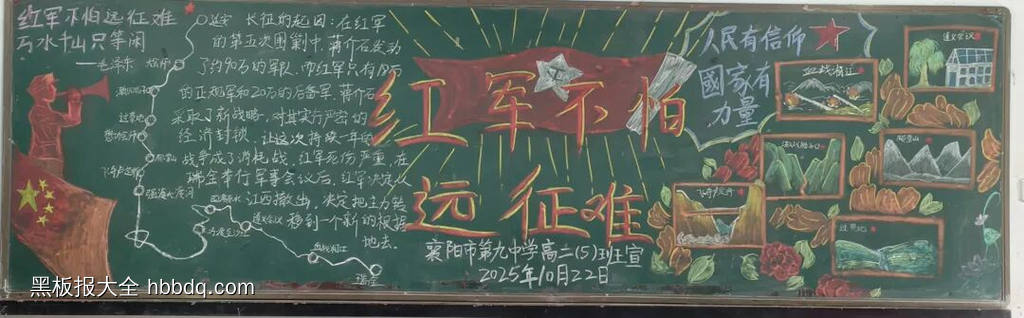 红军不怕远征难
万水千山只等闲
——毛泽东
延安 长征的起因：在红军
的第五次围剿中，蒋介石发动
了约90万的军队，而红军只有
的正规军和20万的后备军，蒋介石
采取了新战略，对其实行严密的
经济封锁，让这次持续一年的
战争成了消耗战，红军死伤严重，在
瑞金举行军事会议后，红军决定从
江西撤出，决定把主力转
移到一个新的根据
地去。
过草地
强渡大渡河
四渡赤水
遵义会议
血战湘江
瑞金
红军不怕
远征难
襄阳市第九中学高二(5)班宣
2025年10月22日
人民有信仰
國家有
力量
血战湘江
遵义会议
过草地
黑板报大全 hbbdq.com